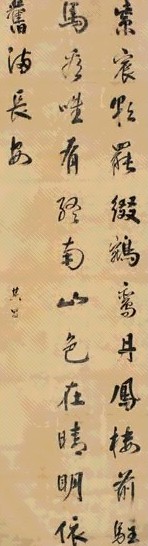 紫宸朝罷綴鵷鸞丹鳳樓前駐
馬看唯有終南山色在晴明依
舊滿長安
其昌